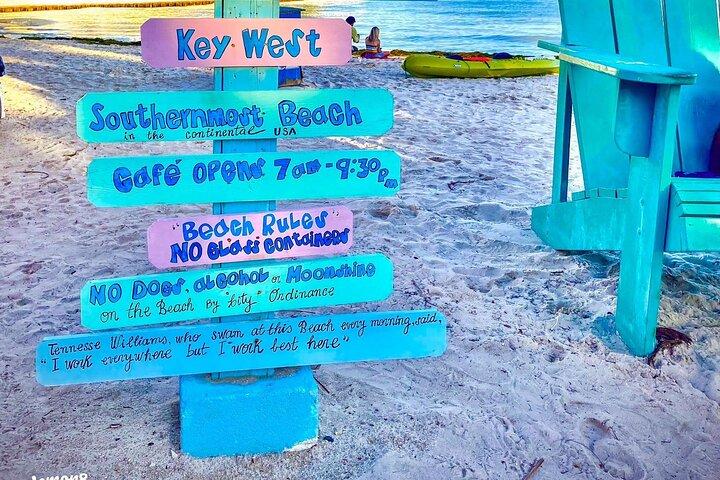 Key West
Southernmost Beach
in the continental USA
Café opens 7am - 9:30pm
"Beach Rules"
No Glass Containers
No Dogs, alcohol or Moonshine
on the Beach by "City" Ordinance
Tennesse Williams, who swam at this Beach every morning, said,
"I work everywhere but I work best here"